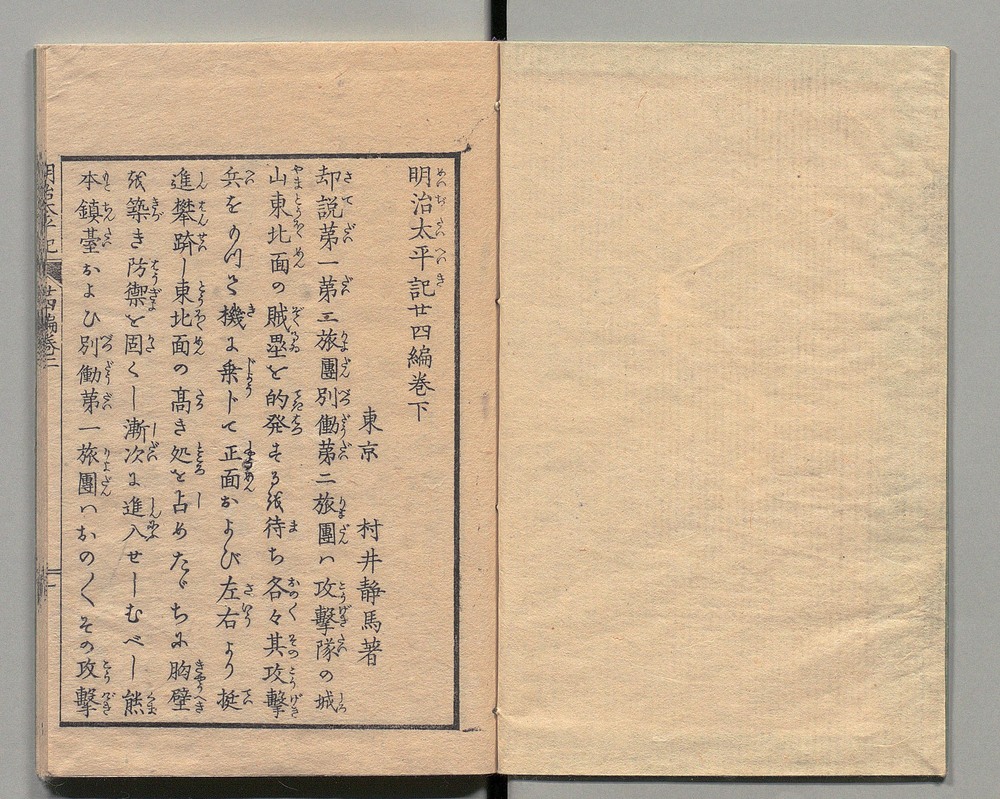 明治太平記廿四編巻下
東京 村井静馬著
却説第一第三旅團別働第二旅團ハ攻擊隊の城
山東北面の賊壘を的発するを待ち各々其攻擊
兵をのりて機に乗トて正面および左右より挺
進攀躋し東北面の髙き処を占めたゞちに胸壁
を築き防禦を固くし漸次に進入せしむべし熊
本鎮臺および別働第一旅團ハおの〱その攻擊
明治太平記 廿四編巻二 一